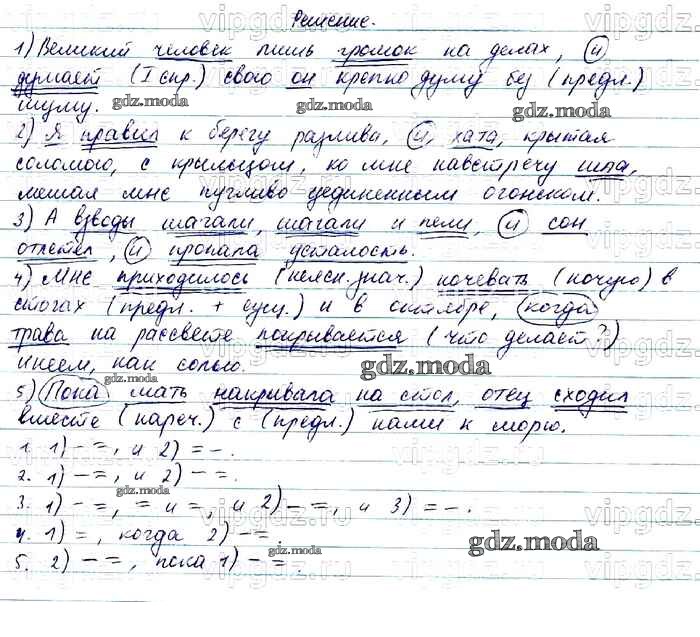 Решение.
1) Великий человек лишь громок на делах, и
думает (I спр.) свою он крепко думу без (предл.)
шуму.
2) Я правил к берегу разлива, и, хата, крытая
соломою, с крыльцом, ко мне навстречу шла,
мешая мне пугливо уединенным огоньком.
3) А взводы шагали, шагали и пели, и сон
отлетел, и пропала усталость.
4) Мне приходилось (неясн. знач.) ночевать (ночую) в
стогах (предл. + сущ.) и в октябре, когда
трава на рассвете покрывается (что делает?)
инеем, как солью.
5) Пока мать накривала на стол, отец сходил
вместе (нареч.) с (предл.) нами к морю.
1. 1) – =, и 2) = –.
2. 1) – =, и 2) – =.
3. 1) – =, = и =, и 2) – =, и 3) = –.
4. 1) =, когда 2) – =.
5. 2) – =, пока 1) – =.
gdz.moda
vipgdz.ru